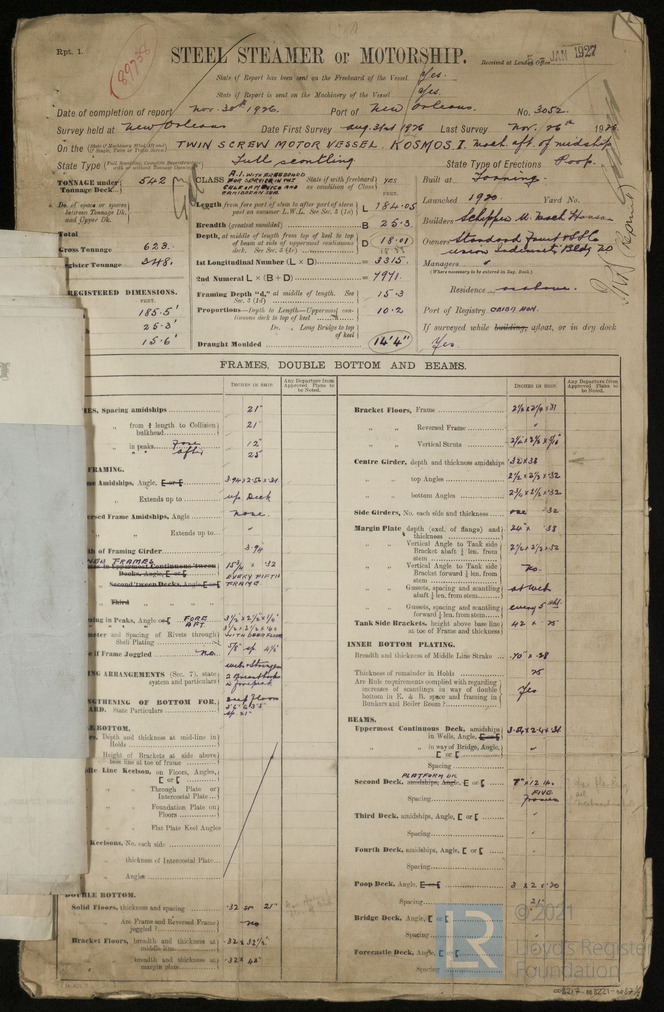 Rpt. 1.
STEEL STEAMER or MOTORSHIP.
Received at London Office 5 - JAN 1927
89738
State if Report has been sent on the Freeboard of the Vessel Yes.
State if Report is sent on the Machinery of the Vessel Yes.
Date of completion of report Nov. 30th 1926. Port of New Orleans. No. 3052.
Survey held at New Orleans Date First Survey Aug. 31st 1926 Last Survey Nov. 26th 1926
On the TWIN SCREW MOTOR VESSEL KOSMOS I. mach. aft. of midship
State Type Full scantling State Type of Erections Poop.
TONNAGE under Tonnage Deck 542
CLASS A.1. WITH FREEBOARD FOR SERVICE IN THE GULF OF MEXICO AND CARIBBEAN SEA
State if (with freeboard) as condition of Class YES
Built at
Do. of space or spaces between Tonnage Dk. and Upper Dk.
Launched 1920 Yard No.
Total
Gross Tonnage 623.
Register Tonnage 348.
REGISTERED DIMENSIONS.
FEET.
185.5'
25.3'
15.6'
Length from fore part of stem to after part of stern post on summer L.W.L. See Sec. 3 (1a) L 184.05
Breadth (greatest moulded) B 25.3
Depth, at middle of length from top of keel to top of beam at side of uppermost continuous deck. See Sec. 3 (1c) D 18.01
1st Longitudinal Number (L × D) = 3315.
2nd Numeral L × (B + D) = 7971.
Framing Depth "d," at middle of length. See Sec. 3 (1d) 15.3
Proportions—Depth to Length—Uppermost continuous deck to top of keel 10.2
Do. Long Bridge to top of keel
Draught Moulded 14'4"
Builders
Owners Standard Fruit & SS Co
Union Indemnity Bldg
Managers "
(Where necessary to be entered in Reg. Book.)
Residence as above.
Port of Registry CEIBA HON.
If surveyed while building, afloat, or in dry dock Yes.
FRAMES, DOUBLE BOTTOM AND BEAMS.
INCHES IN SHIP.
Any Departure from Approved Plans to be Noted.
INCHES IN SHIP.
Any Departure from Approved Plans to be Noted.
MES, Spacing amidships 21"
" from ⅕ length to Collision bulkhead 21"
" in peaks Fore 12"
" " after 25"
FRAMING.
me Amidships, Angle, [ or [
" Extends up to up. Deck
ersed Frame Amidships, Angle None.
" Extends up to "
th of Framing Girder 3.94
WEB FRAMES
es in Uppermost Continuous 'tween Decks, Angle, [ or [ 15¾ × .32
Second 'tween Decks, Angle, [ or [ EVERY FIFTH FRAME
Third " " "
ing in Peaks, Angle or [ FORE
AFT.
meter and Spacing of Rivets through Shell Plating
e if Frame Joggled No.
ING ARRANGEMENTS (Sec. 7), state system and particulars
NGTHENING OF BOTTOM FOR- ARD. State Particulars Deep Floors
LE BOTTOM.
s, Depth and thickness at mid-line in Holds
Height of Brackets at side above base line at toe of frame
dle Line Keelson, on Floors, Angles, [ or [
" Through Plate or Intercostal Plate
" Foundation Plate on Floors
" Flat Plate Keel Angles
Keelsons, No. each side
" thickness of Intercostal Plate
" Angles
OUBLE BOTTOM.
Solid Floors, thickness and spacing .32 on 21"
" Are Frame and Reversed Frame joggled? no
Bracket Floors, breadth and thickness at middle line .32 × 32½"
" breadth and thickness at margin plate .32 × 42"
Bracket Floors, Frame
" " Reversed Frame "
" " Vertical Struts
Centre Girder, depth and thickness amidships 32 × 38
" top Angles 2½ × 2½ × .32
" bottom Angles 2½ × 2½ × .32
Side Girders, No. each side and thickness one .32
Margin Plate depth (excl. of flange) and thickness 24" × .38
" Vertical Angle to Tank side Bracket abaft ¼ len. from stem 2½ × 2½ × .32
" Vertical Angle to Tank side Bracket forward ¼ len. from stem Do.
" Gussets, spacing and scantling abaft ¼ len. from stem at Web
" Gussets, spacing and scantling forward ¼ len. from stem
Tank Side Brackets, height above base line at toe of Frame and thickness
INNER BOTTOM PLATING.
Breadth and thickness of Middle Line Strake
Thickness of remainder in Holds
Are Rule requirements complied with regarding increases of scantlings in way of double bottom in E. & B. space and framing in Bunkers and Boiler Room? Yes
BEAMS.
Uppermost Continuous Deck, amidships in Wells, Angle, [ or [
" in way of Bridge, Angle, [ or [ "
Spacing "
PLATFORM DK.
Second Deck, amidships, Angle, [ or [
Spacing FIVE frames
Third Deck, amidships, Angle, [ or [ "
Spacing "
Fourth Deck, amidships, Angle, [ or [ "
Spacing "
Poop Deck, Angle, [ or [ 3 × 2 × .30
Spacing 21"
Bridge Deck, Angle, [ or [ "
Spacing "
Forecastle Deck, Angle, [ or [ "
Spacing
© 2021
LR
Lloyd's Register
Foundation
008217-008221-0087